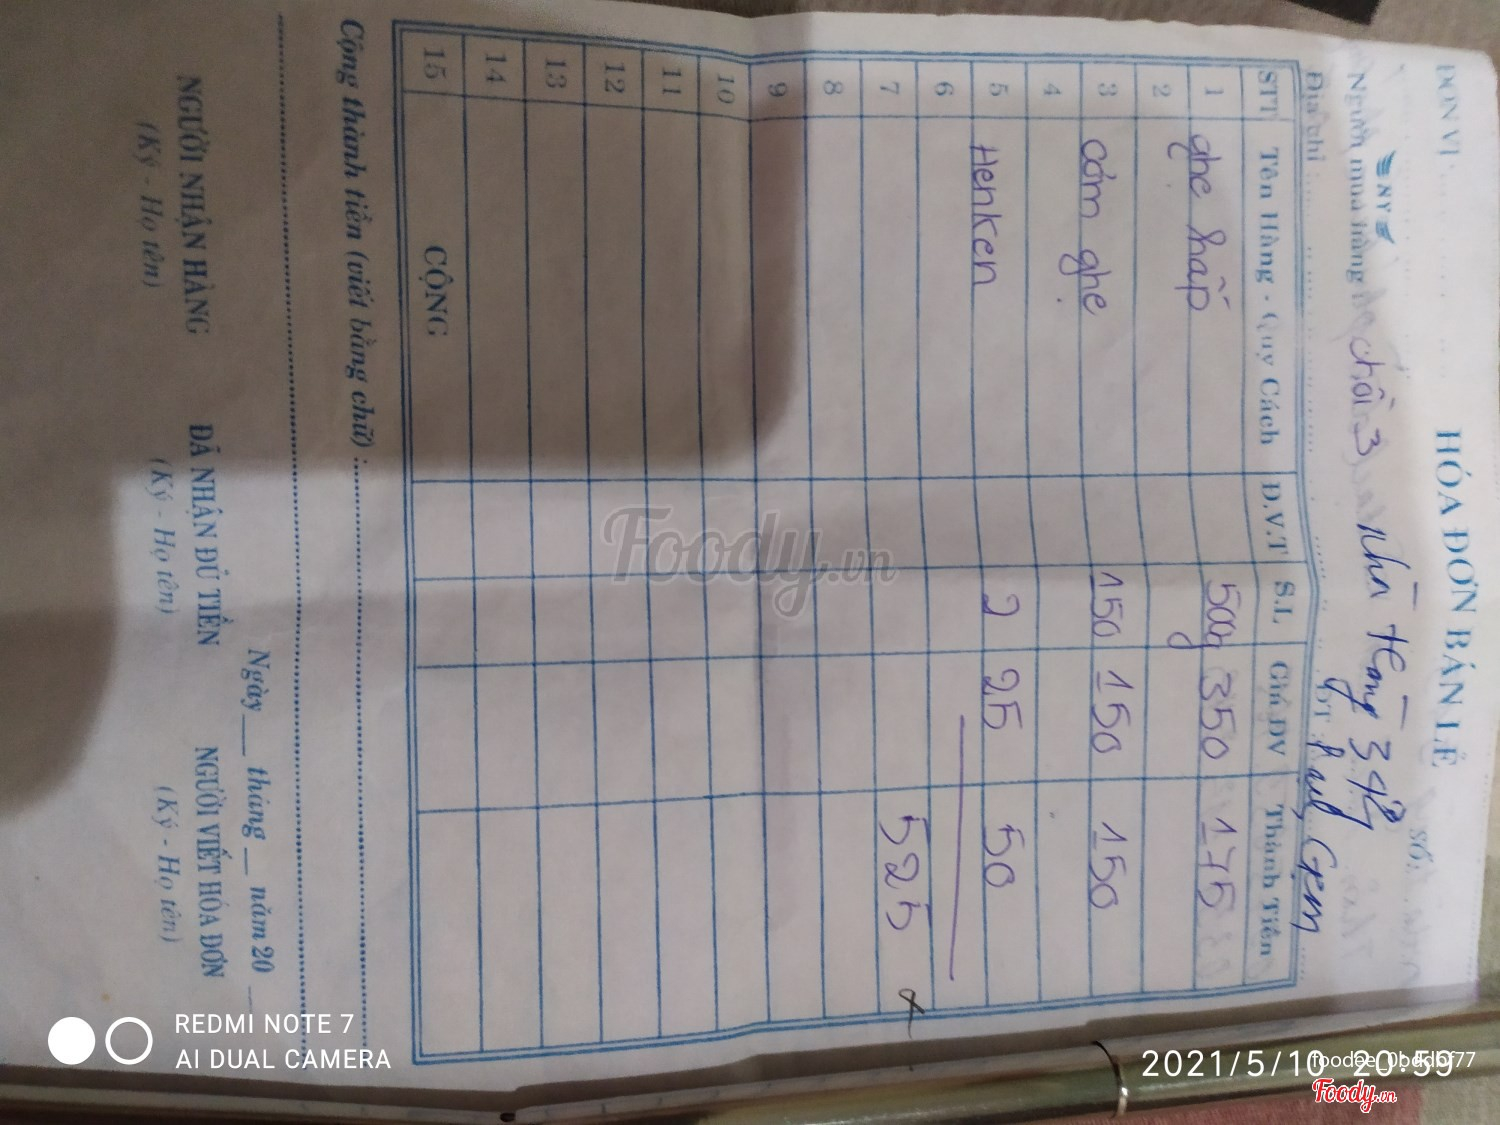 ĐƠN VỊ:
HÓA ĐƠN BÁN LẺ
SỐ:
NY
Người mua hàng chồi 3
Địa chỉ ĐT:
STT Tên Hàng - Quy Cách Đ.V.T S.L Giá ĐV Thành Tiền
1 ghẹ hấp 500g 350 175
2
3 cơm ghẹ 150 150 150
4
5 Henken 2 25 50
6
7 525
8
9
10
11
12
13
14
15 CỘNG
Cộng thành tiền (viết bằng chữ) :
Ngày ___ tháng __ năm 20 __
NGƯỜI NHẬN HÀNG ĐÃ NHẬN ĐỦ TIỀN NGƯỜI VIẾT HÓA ĐƠN
(Ký - Họ tên) (Ký - Họ tên) (Ký - Họ tên)
Foody.vn
REDMI NOTE 7
AI DUAL CAMERA
2021/5/10 20:59
Foody.vn